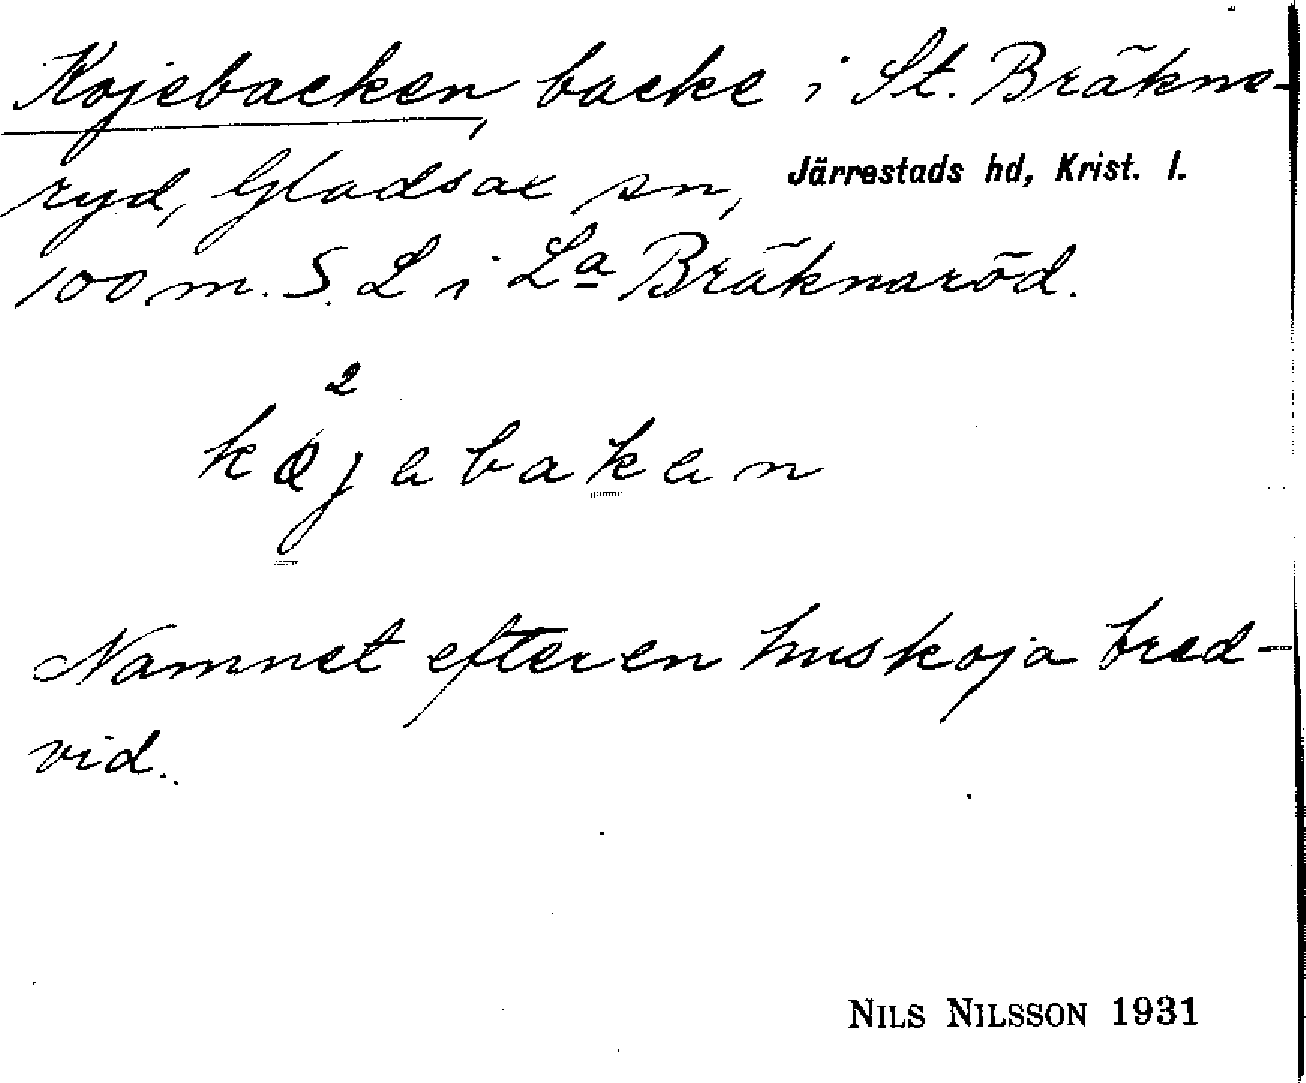 Kojebacken, backe i St. Bräkne-
ryd, Gladsax sn, Järrestads hd, Krist. l.
100 m. S. L i La Bräknaröd.
2
køjabakan
Namnet efter en huskoja bred-
vid.
NILS NILSSON 1931